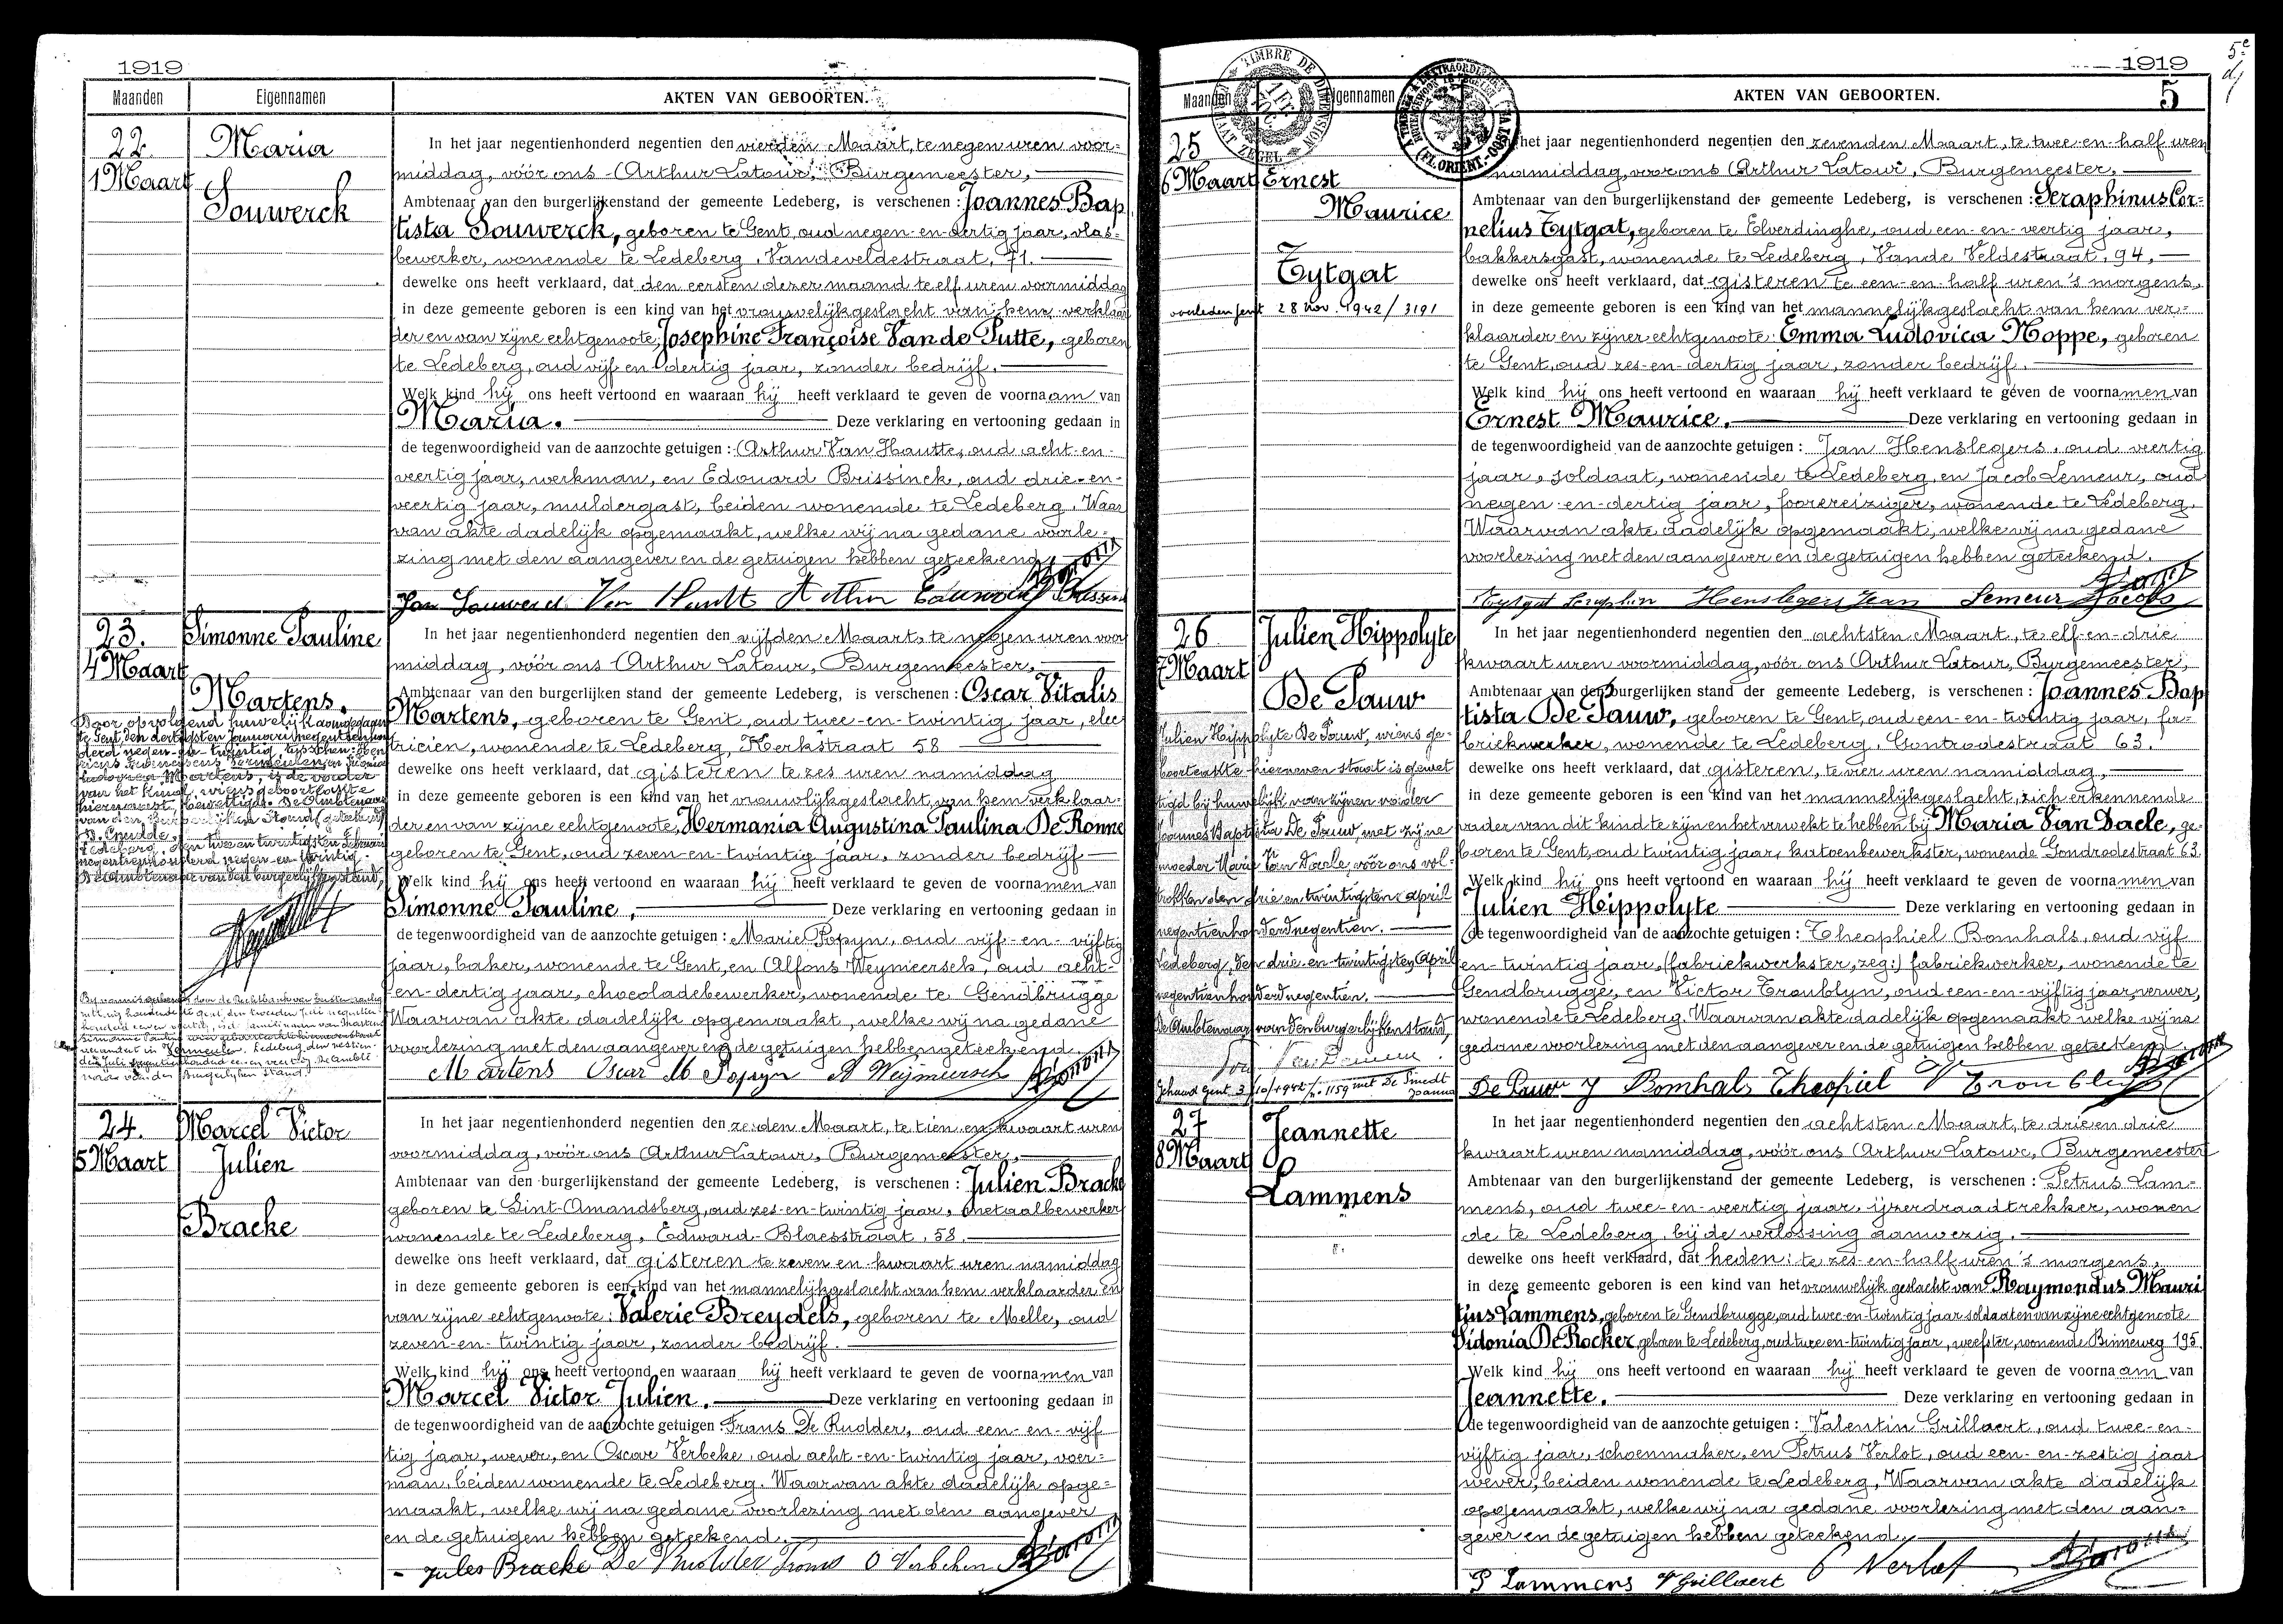 1919
Maanden Eigennamen AKTEN VAN GEBOORTEN.
22.
1 Maart
Maria
Souwerck
In het jaar negentienhonderd negentien den vierden Maart, te negen uren voor-
middag, vóór ons Arthur Latour, Burgemeester,
Ambtenaar van den burgerlijkenstand der gemeente Ledeberg, is verschenen : Joannes Bap
tista Souwerck, geboren te Gent, oud negen-en-dertig jaar, vlas-
bewerker, wonende te Ledeberg, Vandeveldestraat, 71.
dewelke ons heeft verklaard, dat den eersten dezer maand te elf uren voormiddag
in deze gemeente geboren is een kind van het vrouwelijkgeslacht van hem verklaar
der en van zijne echtgenoote, Josephine Françoise Van de Putte, geboren
te Ledeberg, oud vijf en dertig jaar, zonder bedrijf.
Welk kind hij ons heeft vertoond en waaraan hij heeft verklaard te geven de voornaam van
Maria. Deze verklaring en vertooning gedaan in
de tegenwoordigheid van de aanzochte getuigen : Arthur Van Hautte, oud acht-en-
veertig jaar, werkman, en Edouard Brissinck, oud drie-en-
veertig jaar, muldergast, beiden wonende te Ledeberg. Waar
van akte dadelijk opgemaakt, welke wij na gedane voorle-
zing met den aangever en de getuigen hebben geteekend.
Jan Souwerck Van Hautt Arthur Edouard
23.
4 Maart
Simonne Pauline
Martens.
In het jaar negentienhonderd negentien den vijfden Maart, te negen uren voor
middag, vóór ons Arthur Latour, Burgemeester,
Ambtenaar van den burgerlijken stand der gemeente Ledeberg, is verschenen : Oscar Vitalis
Martens, geboren te Gent, oud twee-en-twintig jaar, elec
tricien, wonende te Ledeberg, Kerkstraat 58
dewelke ons heeft verklaard, dat gisteren te zes uren namiddag
in deze gemeente geboren is een kind van het vrouwlijkgeslacht, van hem verklaar-
der en van zijne echtgenoote, Hermania Augustina Paulina De Ronne
geboren te Gent, oud zeven-en-twintig jaar, zonder bedrijf
Welk kind hij ons heeft vertoond en waaraan hij heeft verklaard te geven de voornamen van
Simonne Pauline. Deze verklaring en vertooning gedaan in
de tegenwoordigheid van de aanzochte getuigen : Marie Popyn, oud vijf-en-vijftig
jaar, baker, wonende te Gent, en Alfons Weymeersch, oud acht-
en-dertig jaar, chocoladebewerker, wonende te Gendbrugge
Waarvan akte dadelijk opgemaakt, welke wij na gedane
voorlezing met den aangever en de getuigen hebben geteekend.
Martens Oscar M Popyn A Weymeersch
Door opvolgend huwelijk aangegaan
te Gent, den dertigsten Januari negentienhon
derd negen-en-twintig, tusschen:
Vermeulen en
Martens, is de
van het kind, wiens geboorteakte
hiernevenst, gewettigd. De Ambtenaar
van den burgerlijken Stand
Ledeberg, den twee en twintigsten Februari
negentienhonderd negen-en-twintig.
De Ambtenaar van den burgerlijken stand,
Bij vonnis
Vermeulen. Ledeberg, den
Juli negentienhonderd
van den Burgerlijken Stand.
24.
5 Maart
Marcel Victor
Julien
Bracke
In het jaar negentienhonderd negentien den zesden Maart, te tien en kwaart uren
voormiddag, vóór ons Arthur Latour, Burgemeester,
Ambtenaar van den burgerlijkenstand der gemeente Ledeberg, is verschenen : Julien Bracke
geboren te Sint-Amandsberg, oud zes-en-twintig jaar, metaalbewerker
wonende te Ledeberg, Edward-Blaesstraat, 58.
dewelke ons heeft verklaard, dat gisteren te zeven en kwaart uren namiddag
in deze gemeente geboren is een kind van het mannelijkgeslacht van hem verklaarder en
van zijne echtgenoote: Valerie Breydels, geboren te Melle, oud
zeven-en-twintig jaar, zonder bedrijf.
Welk kind hij ons heeft vertoond en waaraan hij heeft verklaard te geven de voornamen van
Marcel Victor Julien. Deze verklaring en vertooning gedaan in
de tegenwoordigheid van de aanzochte getuigen : Frans De Rudder, oud een-en-vijf
tig jaar, wever, en Oscar Verbeke, oud acht-en-twintig jaar, voer-
man, beiden wonende te Ledeberg. Waarvan akte dadelijk opge-
maakt, welke wij na gedane voorlezing met den aangever
en de getuigen hebben geteekend.
Jules Bracke De Rudder Frans O Verbeken
1919
5
5e
TIMBRE DE DIMENSION
Maanden Eigennamen AKTEN VAN GEBOORTEN.
25
6 Maart
Ernest
Maurice
Tytgat
overleden Gent 28 Nov. 1942 / 3191
In het jaar negentienhonderd negentien den zevenden Maart, te twee-en-half uren
namiddag, vóór ons Arthur Latour, Burgemeester,
Ambtenaar van den burgerlijkenstand der gemeente Ledeberg, is verschenen : Seraphinus Cor-
nelius Tytgat, geboren te Elverdinghe, oud een-en-veertig jaar,
bakkersgast, wonende te Ledeberg, Vande Veldestraat, 94,
dewelke ons heeft verklaard, dat gisteren te een-en-half uren 's morgens,
in deze gemeente geboren is een kind van het mannelijkgeslacht van hem ver-
klaarder en zijner echtgenoote: Emma Ludovica Noppe, geboren
te Gent, oud zes-en-dertig jaar, zonder bedrijf.
Welk kind hij ons heeft vertoond en waaraan hij heeft verklaard te geven de voornamen van
Ernest Maurice. Deze verklaring en vertooning gedaan in
de tegenwoordigheid van de aanzochte getuigen : Jan Henslegers, oud veertig
jaar, soldaat, wonende te Ledeberg, en Jacob Lemeur, oud
negen-en-dertig jaar, foorereiziger, wonende te Ledeberg.
Waarvan akte dadelijk opgemaakt, welke wij na gedane
voorlezing met den aangever en de getuigen hebben geteekend.
Tytgat Seraphin Henslegers Jean Lemeur Jacobs
26
7 Maart
Julien Hippolyte
De Pauw
Julien Hippolyte De Pauw, wiens ge-
boorteakte hierneven staat is gewet
tigd bij huwelijk van zijnen vader
Joannes Baptista De Pauw, met zijne
moeder Maria Van Daele, vóór ons vol-
trokken den drie en twintigsten April
negentienhonderd negentien.
Ledeberg, den drie-en-twintigsten April
negentienhonderd negentien.
De Ambtenaar van den burgerlijken stand,
Gehuwd Gent 3/10/1942 / n. 1159 met De Smedt
Joanna
In het jaar negentienhonderd negentien den achtsten Maart, te elf-en-drie
kwaart uren voormiddag, vóór ons Arthur Latour, Burgemeester,
Ambtenaar van den burgerlijken stand der gemeente Ledeberg, is verschenen : Joannes Bap
tista De Pauw, geboren te Gent, oud een-en-twintig jaar, fa-
briekwerker, wonende te Ledeberg, Gontrodestraat 63.
dewelke ons heeft verklaard, dat gisteren, te vier uren namiddag,
in deze gemeente geboren is een kind van het mannelijkgeslacht, zich erkennende
vader van dit kind te zijn en het verwekt te hebben bij Maria Van Daele, ge-
boren te Gent, oud twintig jaar, katoenbewerkster, wonende Gondrodestraat 63.
Welk kind hij ons heeft vertoond en waaraan hij heeft verklaard te geven de voornamen van
Julien Hippolyte Deze verklaring en vertooning gedaan in
de tegenwoordigheid van de aanzochte getuigen : Theophiel Bomhals, oud vijf
en-twintig jaar, (fabriekwerkster, zeg:) fabriekwerker, wonende te
Gendbrugge, en Victor Troublyn, oud een-en-vijftig jaar, verver,
wonende te Ledeberg. Waarvan akte dadelijk opgemaakt welke wij na
gedane voorlezing met den aangever en de getuigen hebben geteekend.
De Pauw J Bomhals Theophiel V Troubleyn
27
8 Maart
Jeannette
Lammens
In het jaar negentienhonderd negentien den achtsten Maart, te drie en drie
kwaart uren namiddag, vóór ons Arthur Latour, Burgemeester
Ambtenaar van den burgerlijkenstand der gemeente Ledeberg, is verschenen : Petrus Lam-
mens, oud twee-en-veertig jaar, ijzerdraadtrekker, wonen
de te Ledeberg, bij de verlossing aanwezig.
dewelke ons heeft verklaard, dat heden: te zes-en-half uren 's morgens,
in deze gemeente geboren is een kind van het vrouwelijk geslacht van Raymondus Mauri
tius Lammens, geboren te Gendbrugge, oud twee-en-twintig jaar soldaat en van zijne echtgenoote
Sidonia De Rocker, geboren te Ledeberg, oud twee-en-twintig jaar, weefster, wonende Binneweg 195.
Welk kind hij ons heeft vertoond en waaraan hij heeft verklaard te geven de voornaam van
Jeannette. Deze verklaring en vertooning gedaan in
de tegenwoordigheid van de aanzochte getuigen : Valentin Grillaert, oud twee-en-
vijftig jaar, schoenmaker, en Petrus Verlot, oud een-en-zestig jaar
wever, beiden wonende te Ledeberg. Waarvan akte dadelijk
opgemaakt, welke wij na gedane voorlezing met den aan-
gever en de getuigen hebben geteekend.
P Lammens V Grillaert P Verlot